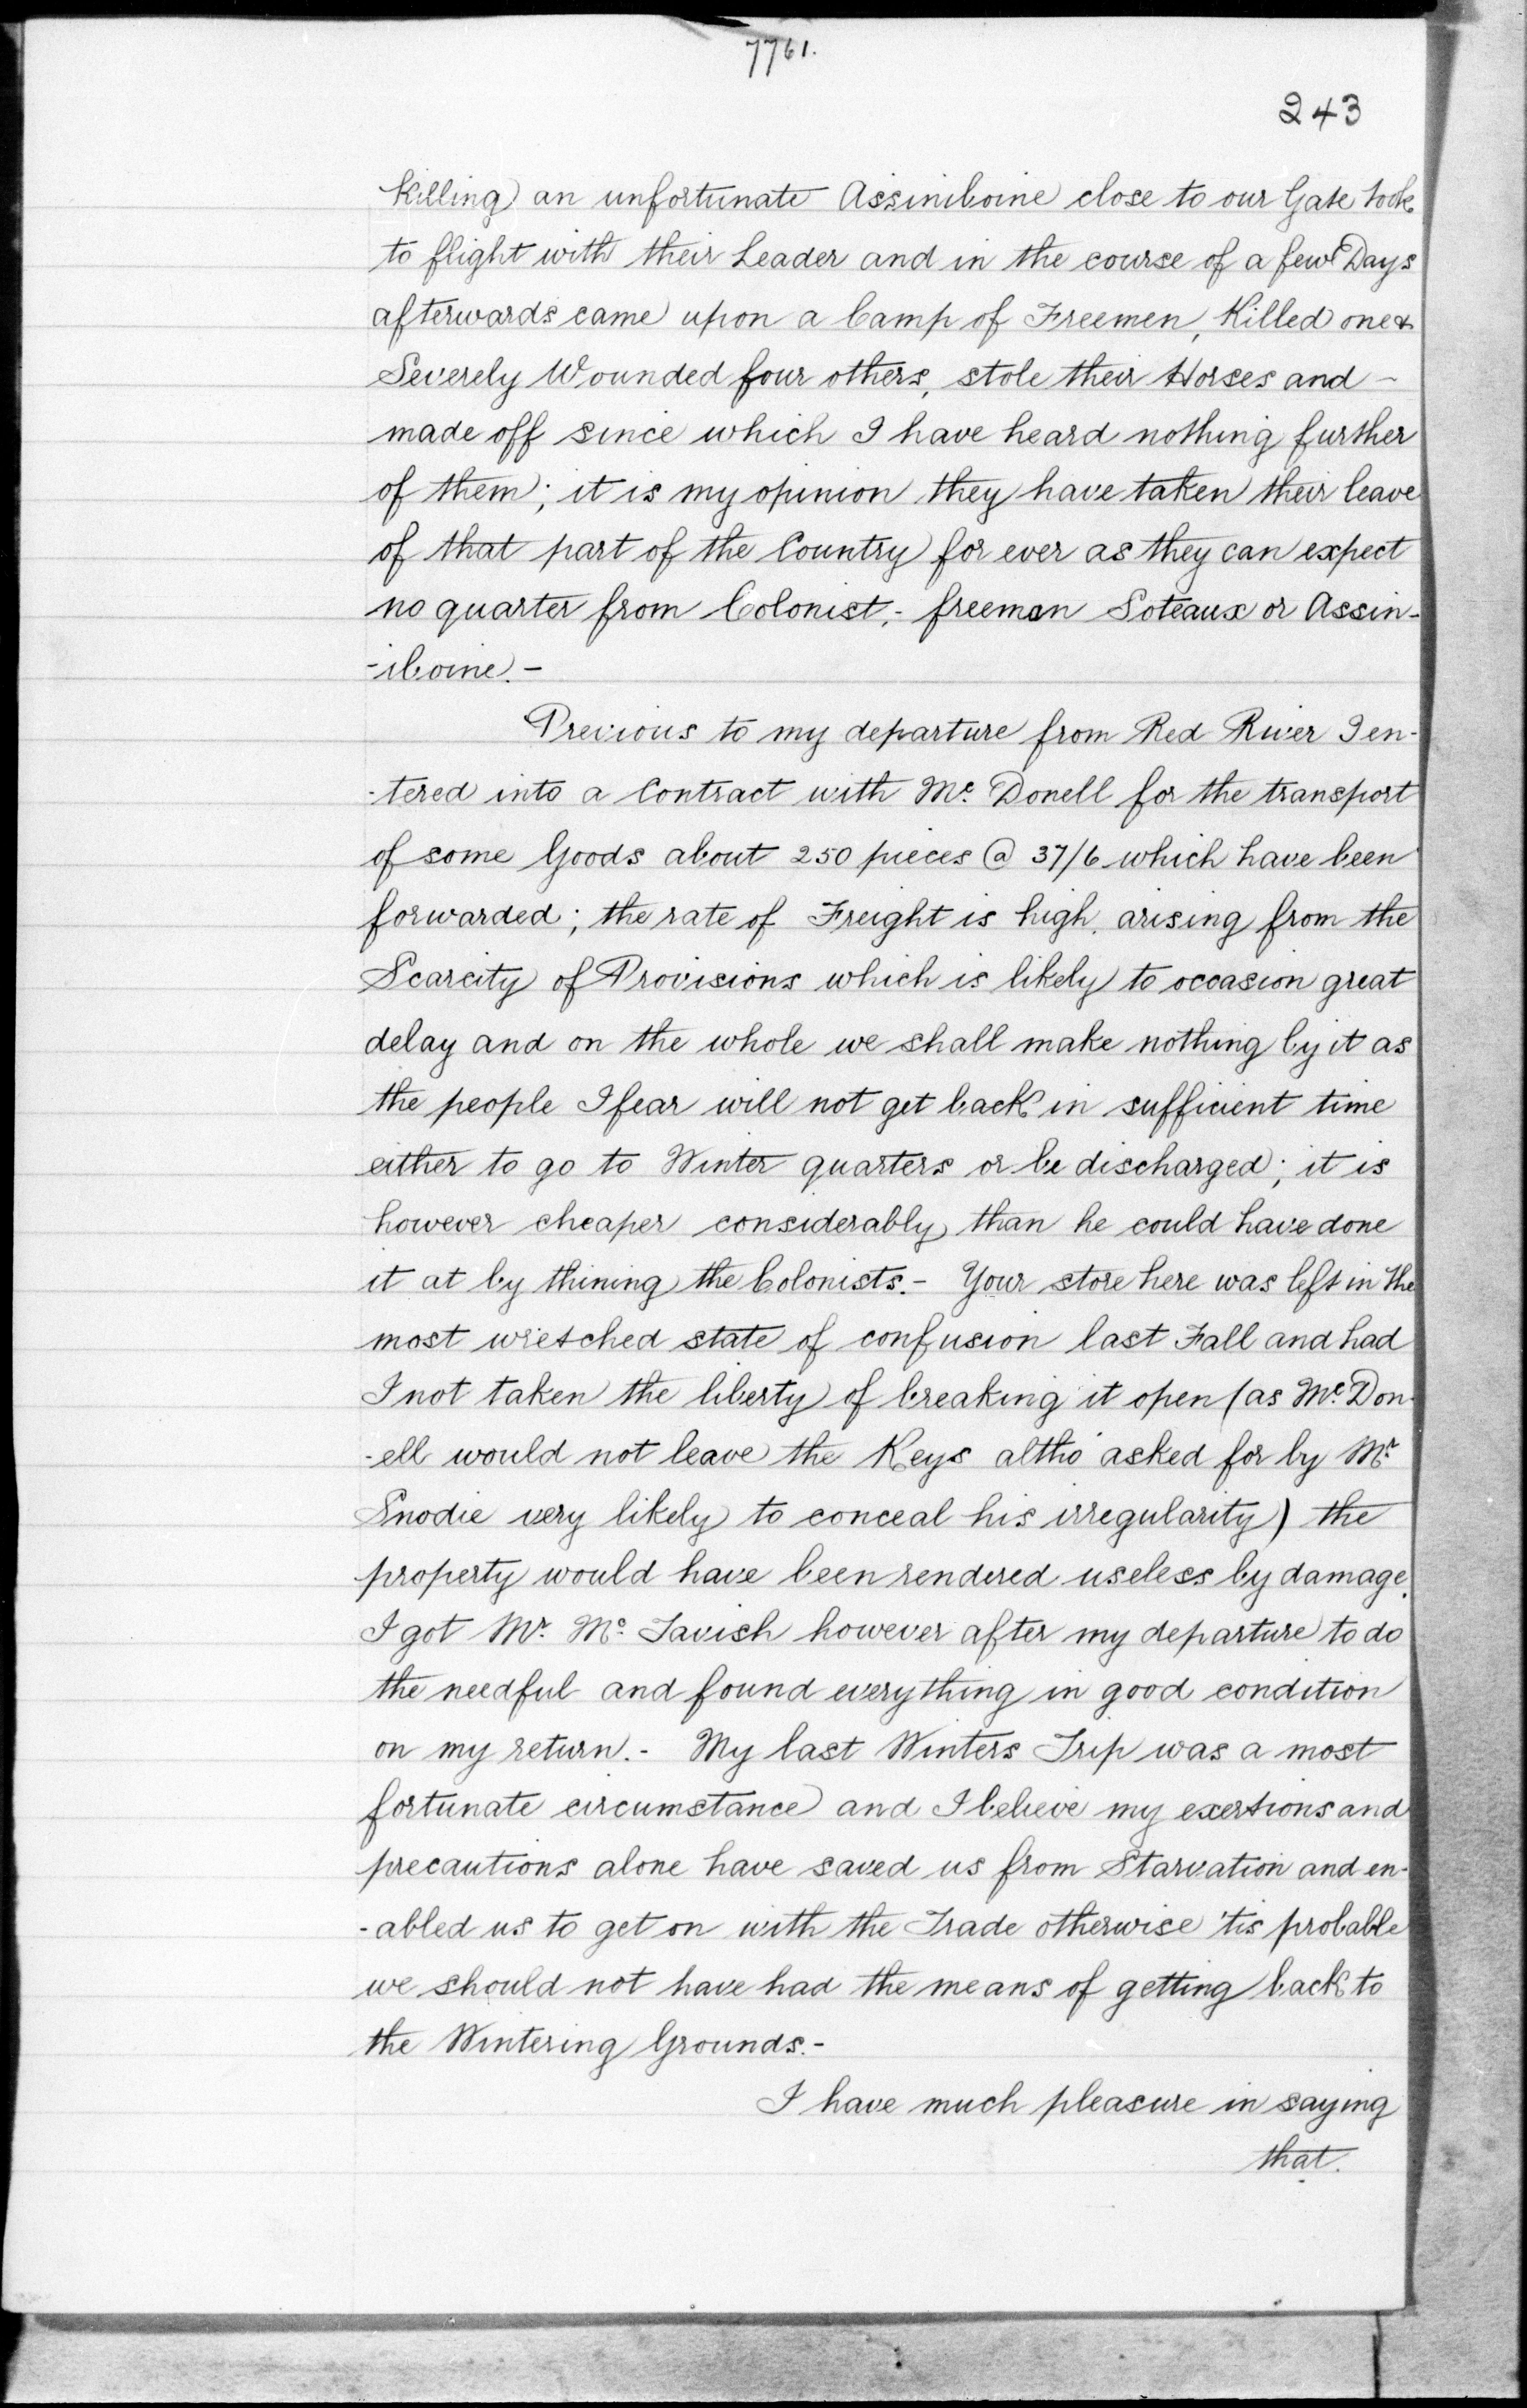 7761.
243
Killing an unfortunate Assiniboine close to our Gate took
to flight with their Leader and in the course of a few Days
afterwards came upon a Camp of Freemen, Killed one &
Severely Wounded four others, stole their Horses and -
made off since which I have heard nothing further
of them; it is my opinion they have taken their leave
of that part of the Country for ever as they can expect
no quarter from Colonist, - freeman Soteaux or Assin-
-iboine. -
Previous to my departure from Red River I en-
-tered into a Contract with Mc. Donell for the transport
of some Goods about 250 pieces @ 37/6 which have been
forwarded; the rate of Freight is high, arising from the
Scarcity of Provisions which is likely to occasion great
delay and on the whole we shall make nothing by it as
the people I fear will not get back in sufficient time
either to go to Winter quarters or be discharged; it is
however cheaper considerably than he could have done
it at by thining the Colonists. - Your store here was left in the
most wretched state of confusion last Fall and had
I not taken the liberty of breaking it open (as Mc. Don-
-ell would not leave the Keys altho' asked for by Mr.
Snodie very likely to conceal his irregularity) the
property would have been rendered useless by damage.
I got Mr. Mc. Tavish however after my departure to do
the needful and found everything in good condition
on my return. - My last Winters Trip was a most
fortunate circumstance and I believe my exertions and
precautions alone have saved us from Starvation and en-
-abled us to get on with the Trade otherwise 'tis probable
we should not have had the means of getting back to
the Wintering Grounds. -
I have much pleasure in saying
that.